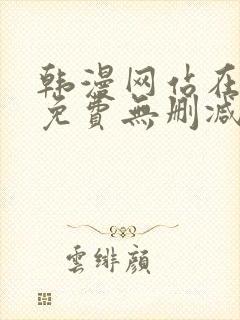 韩漫网站在
免費無删减
雲绯颜